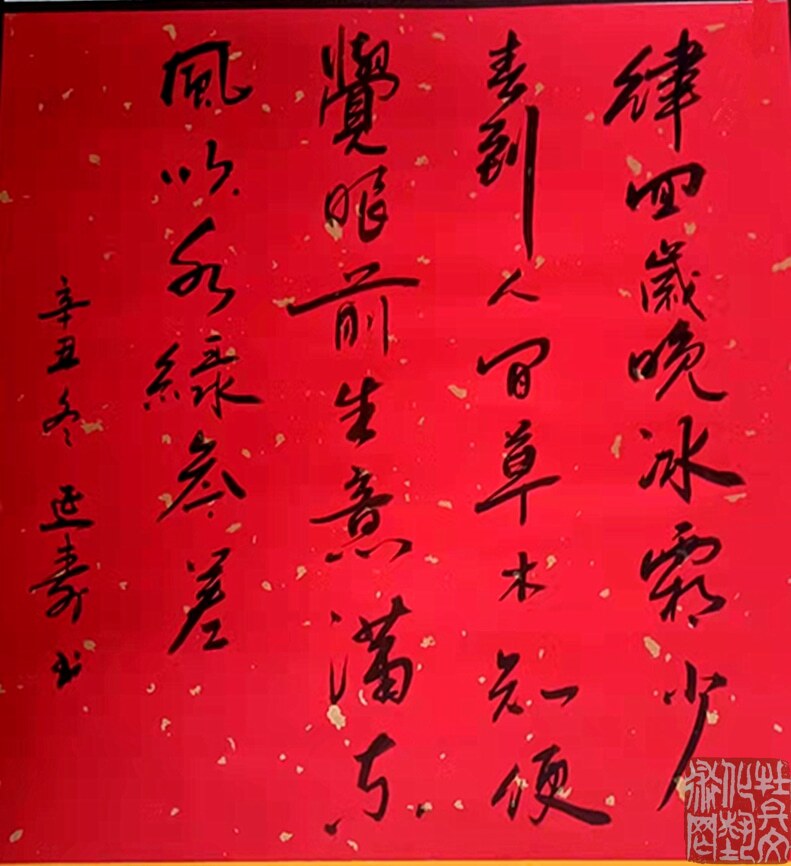 律回歲晚冰霜少
春到人間草木知便
覺眼前生意滿东
風吹水綠参差
辛丑冬延壽书